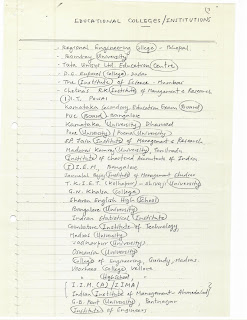 EDUCATIONAL COLLEGES/INSTITUTIONS
- Regional Engineering College - Bhopal
- Bombay University
- Tata Unisys Ltd. Education Centre
- D.C. College
- The Institute of Science - Mumbai
- Chetna's R.K. Institute of Management & Research
I.I.T. Powai
Karnataka Secondary Education Exam Board
PUC Board, Bangalore
Karnataka University Dharwad
Pune University / Poona University
SP Jain Institute of Management & Research
Madurai Kamraj University, Tamilnadu
Institute of Chartered Accountants of India,
I.I.M., Bangalore
Jamnalal Bajaj Institute of Management Studies
T.K.I.E.T. (Kolhapur) - Shivaji University
G.N. Khalsa College
English High School
Bangalore University
Indian Statistical Institute
Coimbatore Institute of Technology,
Madras University
University
Osmania University
College of Engineering, Guindy, Madras.
Voorhees College Vellore
" Highschool "
I.I.M. (A) IIMA
Indian Institute of Management - Ahmedabad
G.B. Pant University, Pantnagar
Institute of Engineers